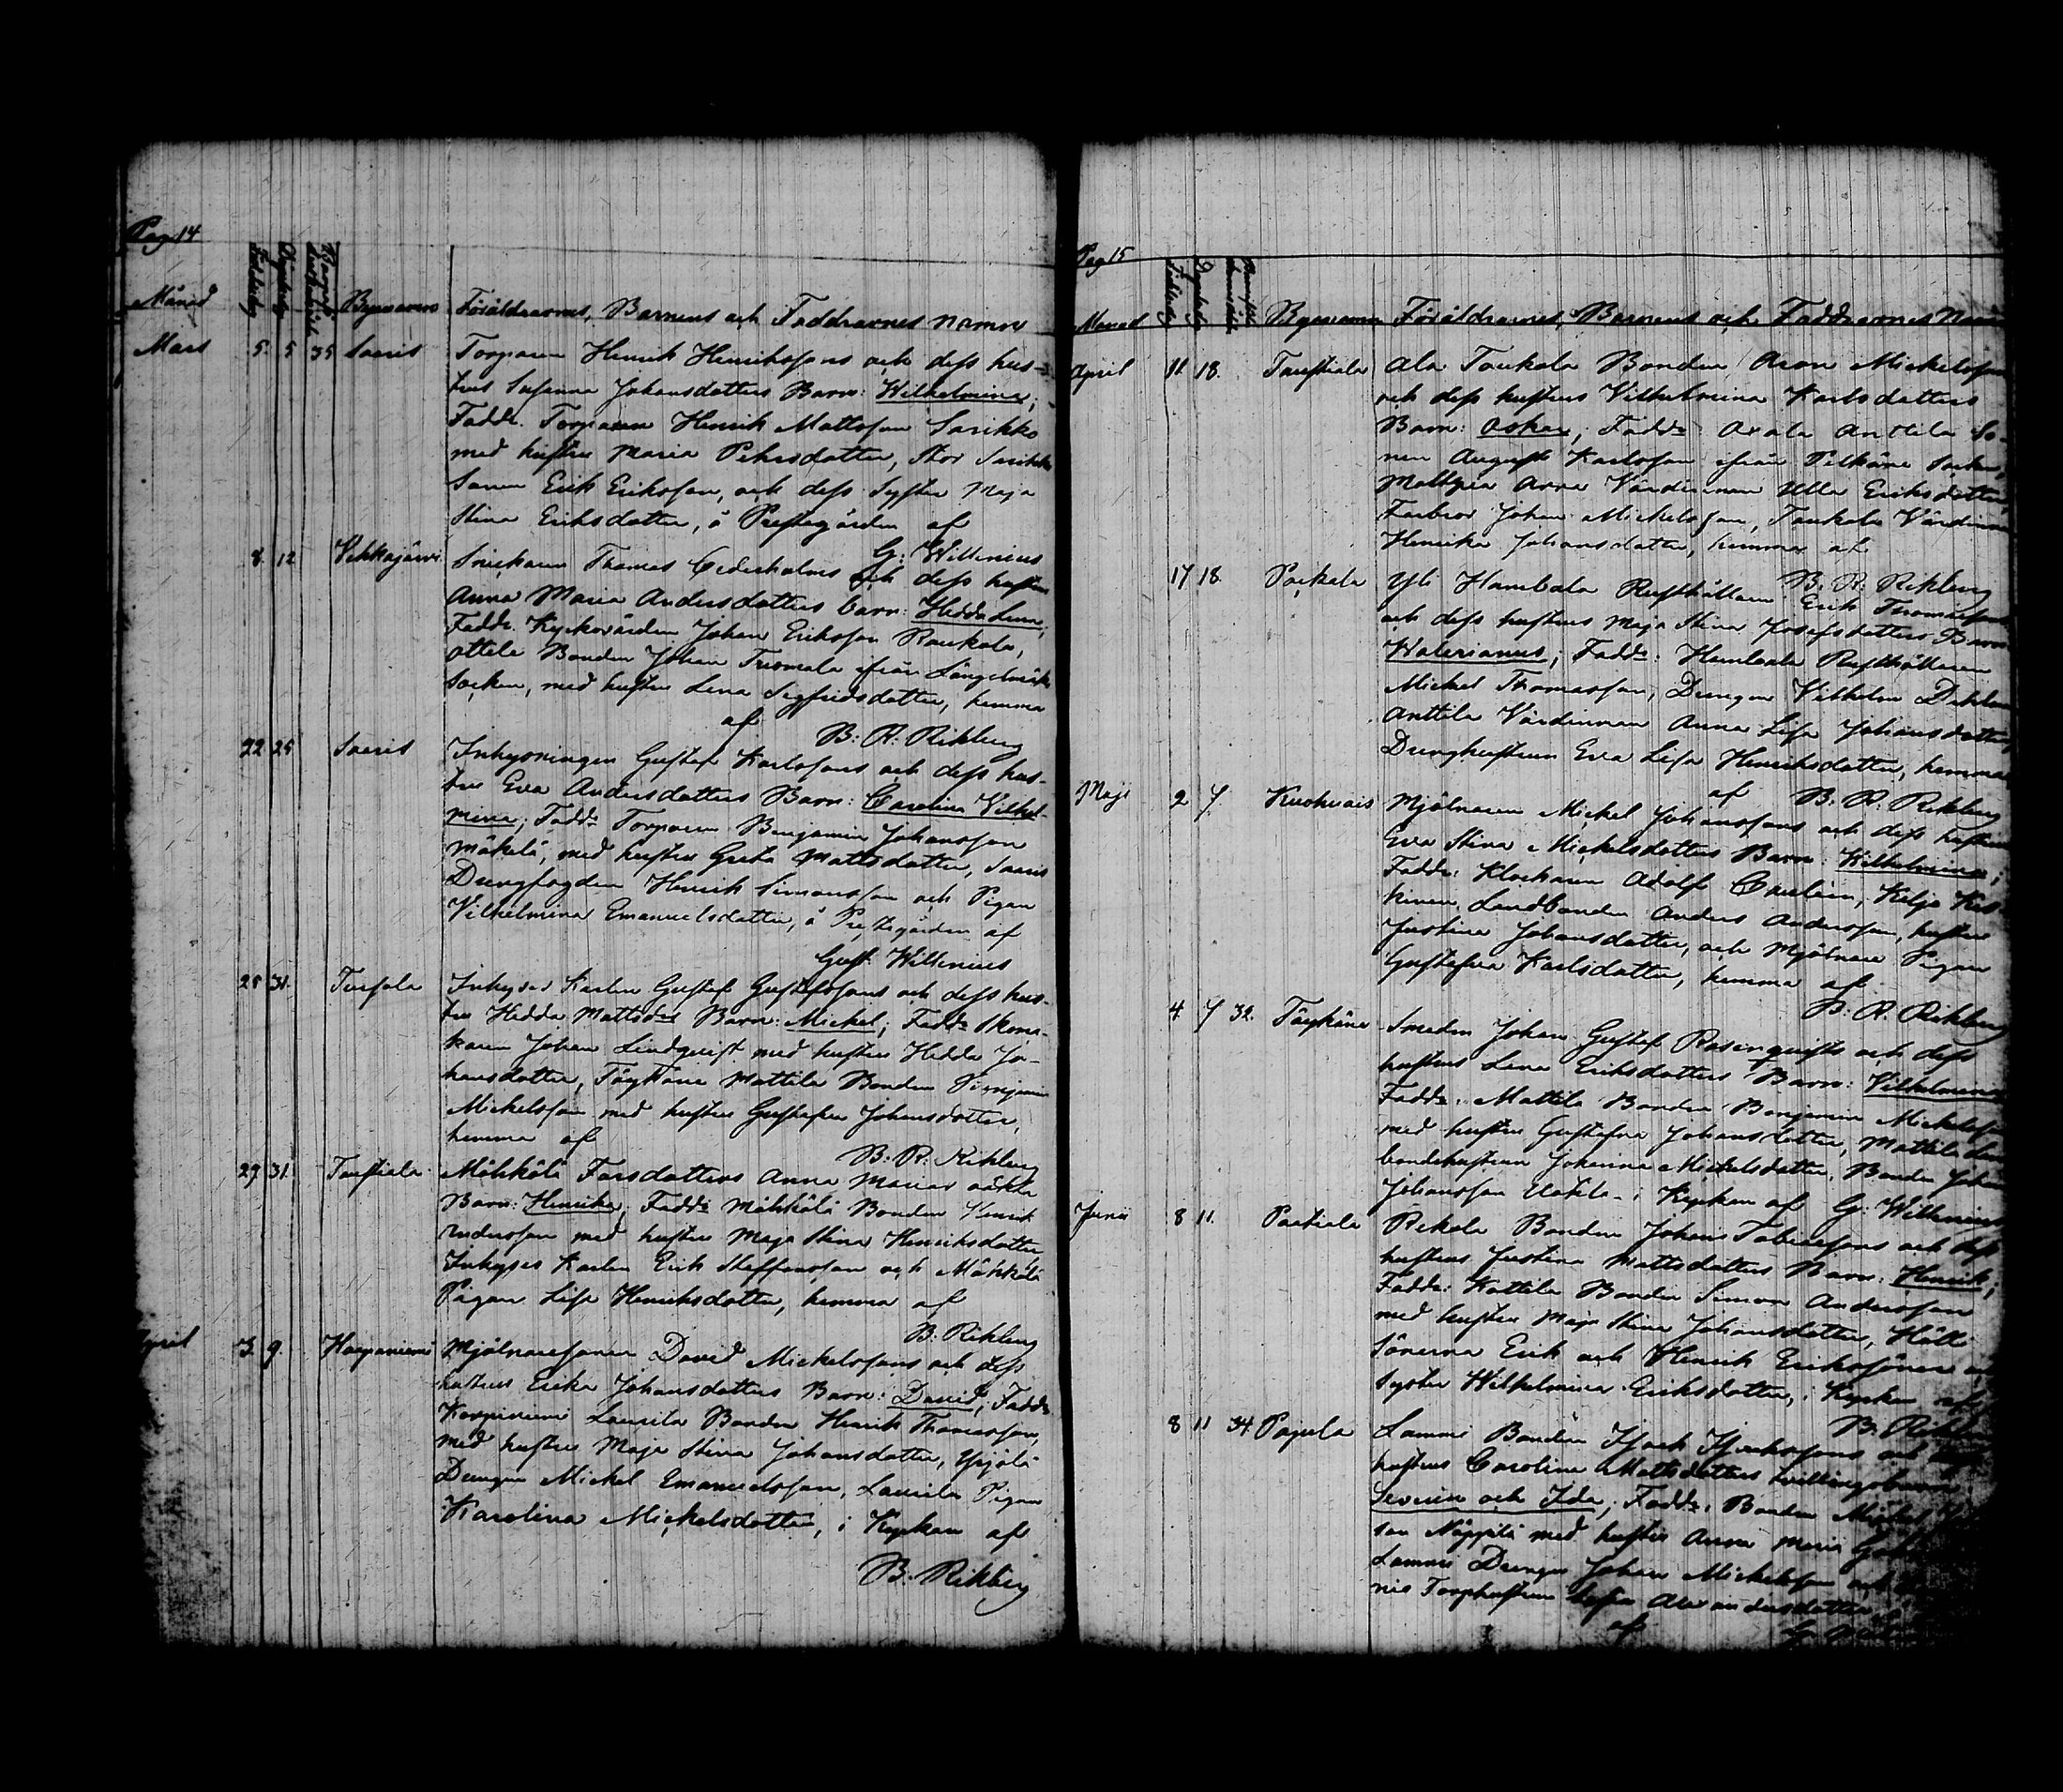 Pag 14
Månad Födelsedag Döpelsedag Byanamn Föräldrarnes, Barnens och Faddrarnes namn
Mars 5. 5 35 Saaris Torparen Henrik Henrikssons och dess hus-
trus Susanna Johansdotters Barn: Wilhelmina;
Fadd. Torparen Henrik Mattsson Sarikko
med hustru Maria Pehrsdotter, Stor Sarikko
Sonen Erik Eriksson, och dess Syster Maja
Stina Eriksdotter, å Prestegården af
G. Willenius
8. 12 Vekkajärvi Snickaren Thomas Cederholms och dess hustrus
Anna Maria Andersdotters barn: Hedda Lena;
Fadd. Kyrkovärden Johan Eriksson Raukola,
Ottila Bonden Johan Tuomala ifrån Längelmäki
Socken, med hustru Lena Sigfridsdotter, hemma
af B. R. Rikberg
22 25 Saaris Inhysningen Gustaf Karlssons och dess hus-
trus Eva Andersdotters Barn: Carolina Vilhel-
mina; Fadd. Torparen Benjamin Johansson
Mäkelä, med hustru Greta Mattsdotter, Saaris
Drengfogden Henrik Simonsson och Pigan
Vilhelmina Emanuelsdotter, å Prestegården af
Gust. Willenius
25 31. Inhyses Karlen Gustaf Gustafssons och dess hus-
trus Hedda Mattsdrs Barn: Mickel; Fadd. Skoma-
karen Johan Lindqvist med hustru Hedda Jo-
hansdotter, Töykäne Mattila Bonden Benjamin
Mickelsson med hustru Gustafva Johansdotter,
hemma af B. R. Rikberg
29 31. Tursiala Mähkölä Farsdotters Anna Marias oäkta
Barn: Henrika; Fadd. Mähkölä Bonden Henrik
Andersson med hustru Maja Stina Henriksdotter
Inhyses Karlen Erik Steffansson och Mähkölä
Pigan Lisa Henriksdotter, hemma af
B. Rikberg
April 3. 9. Haapaniemi Mjölnaresonen David Mickelssons och dess
hustrus Erika Johansdotters Barn: David; Fadd.
Laurila Bonden Henrik Thomasson,
med hustru Maja Stina Johansdotter,
Drengen Mickel Emanuelsson, Laurila Pigan
Karolina Mickelsdotter, i Kyrkan af
B. Rikberg
Pag 15
Månad Födelsedag Döpelsedag Byanamn Föräldrarnes, Barnens och Faddrarnes Namn
April 11. 18. Tursiala Ala Taukola Bonden Aron Mickelssons
och dess hustrus Vilhelmina Karlsdotters
Barn: Oskar; Fadd. Anttila So-
nen August Karlsson ifrån Pelkäne Socken,
Anna Värdinnan Ulla Eriksdotter,
Farbror Johan Mickelsson, Taukola Värdinnan
Henrika Johansdotter, hemma af
B. R. Rikberg
17 18. Yli Rusthållaren Erik Thomassons
och dess hustrus Maja Stina Josefsdotters Barn:
Walerianus; Fadd. Rusthållaren
Mickel Thomasson, Drengen Vilhelm
Anttila Värdinnan Anna Lisa Johansdotter,
Drenghustrun Eva Lisa Henriksdotter, hemma
af B. R. Rikberg
Maji 2 7. Kuohuais Mjölnaren Mickel Johanssons och dess hustrus
Eva Stina Mickelsdotters Barn: Wilhelmina;
Fadd. Klockaren Adolf
Landbonden Anders Andersson, hustru
Justina Johansdotter, och Mjölnare Pigan
Gustafva Karlsdotter, hemma af
B. R. Rikberg
4 7 32. Töykäne Smeden Johan Gustaf Rosenqvists och dess
hustrus Lena Eriksdotters Barn: Vilhelmina
Fadd. Mattila Bonden Benjamin Mickelsson
med hustru Gustafva Johansdotter, Mattila
bondehustrun Johanna Mickelsdotter, Bonden Johan
Johansson Uotila, i Kyrkan af G. Willenius
Junii 8 11. Pekola Bonden Johan Tobiassons och dess
hustrus Justina Mattsdotters Barn: Henrik;
Fadd. Kattila Bonden Simon Andersson
med hustru Maja Stina Johansdotter,
Sönerna Erik och Henrik Erikssöner och
Syster Wilhelmina Eriksdotter, i Kyrkan af
B. Rikberg
8 11 34 Pajula Lammi Bonden Isack Isackssons och dess
hustrus Carolina Mattsdotters tvillingebarn
Severin och Ida; Fadd. Bonden Mickel
son Näppilä med hustru Anna Maria
Lammi Drengen Johan Mickelsson och
Torphustrun Alexandersdotter
af